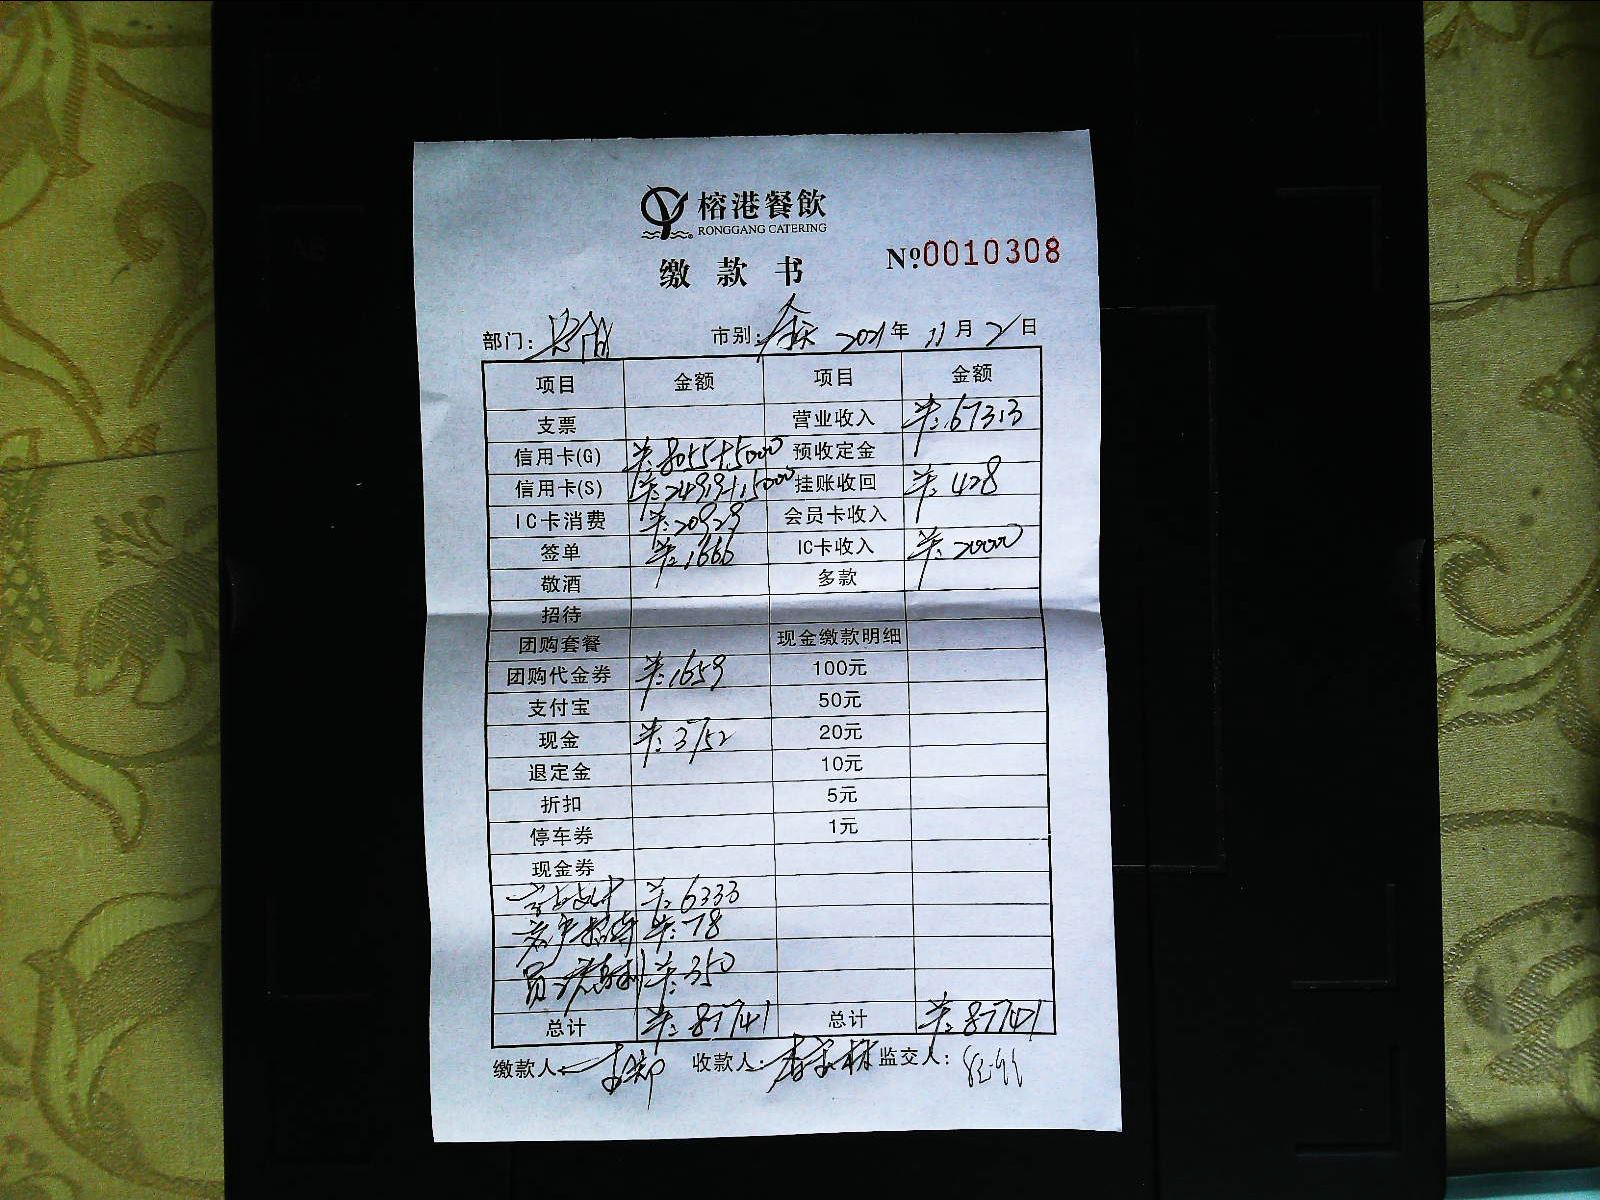 榕港餐飲
RONGGANG CATERING
缴款书 №0010308
部门: 市别: 全天 2021年 11月 2日
项目 金额 项目 金额
支票 营业收入 ¥:67313
信用卡(G) ¥:8055+5000 预收定金
信用卡(S) ¥:24919+15000 挂账收回 ¥:428
IC卡消费 ¥:20929 会员卡收入
签单 ¥:1666 IC卡收入 ¥:20000
敬酒 多款
招待
团购套餐 现金缴款明细
团购代金券 ¥:1659 100元
支付宝 50元
现金 ¥:3752 20元
退定金 10元
折扣 5元
停车券 1元
现金券
¥:6333
客户招待 ¥:78
员工福利 ¥:350
总计 ¥:87741 总计 ¥:87741
缴款人: 收款人: 监交人: